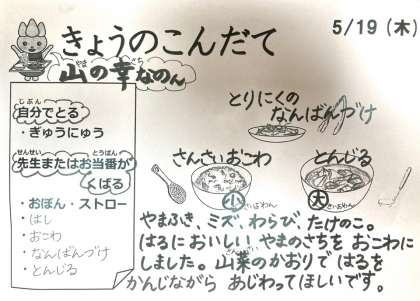 きょうのこんだて
5/19 (木)
山の幸なのん
やま さち
とりにくの
なんばんづけ
じぶん
自分でとる
・ぎゅうにゅう
せんせい とうばん
先生またはお当番が
くばる
・おぼん・ストロー
・はし
・おこわ
・なんばんづけ
・とんじる
さんさいおこわ
小
とんじる
大
やまふき、ミズ、わらび、たけのこ。
はるにおいしいやまのさちを おこわに
しました。山菜のかおりではるを
かんじながら あじわってほしいです。